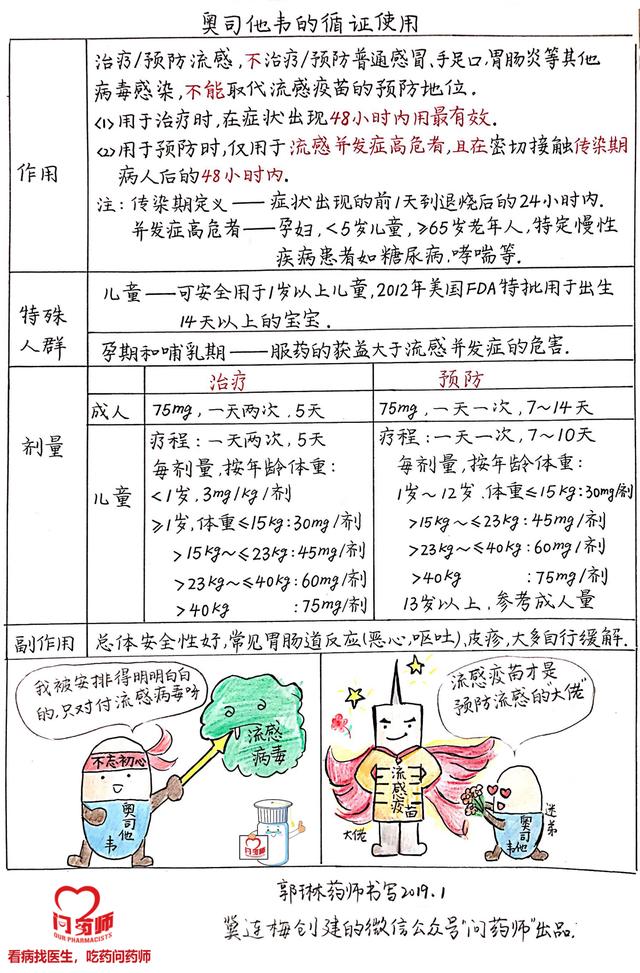 奥司他韦的循证使用
作用
治疗/预防流感,不治疗/预防普通感冒、手足口,胃肠炎等其他
病毒感染,不能取代流感疫苗的预防地位.
(1)用于治疗时,在症状出现48小时内用最有效.
(2)用于预防时,仅用于流感并发症高危者,且在密切接触传染期
病人后的48小时内.
注:传染期定义——症状出现的前1天到退烧后的24小时内.
并发症高危者——孕妇,<5岁儿童,≥65岁老年人,特定慢性
疾病患者如糖尿病,哮喘等.
特殊
人群
儿童——可安全用于1岁以上儿童,2012年美国FDA特批用于出生
14天以上的宝宝.
孕期和哺乳期——服药的获益大于流感并发症的危害.
剂量
治疗
预防
成人
75mg,一天两次,5天
75mg,一天一次,7~14天
儿童
疗程:一天两次,5天
每剂量,按年龄体重:
<1岁,3mg/kg/剂
≥1岁,体重≤15kg:30mg/剂
>15kg~≤23kg:45mg/剂
>23kg~≤40kg:60mg/剂
>40kg :75mg/剂
疗程:一天一次,7~10天
每剂量,按年龄体重:
1岁~12岁.体重≤15kg:30mg/剂
>15kg~≤23kg:45mg/剂
>23kg~≤40kg:60mg/剂
>40kg :75mg/剂
13岁以上,参考成人量
副作用
总体安全性好,常见胃肠道反应(恶心,呕吐),皮疹,大多自行缓解.
我被安排得明明白白
的,只对付流感病毒呀
流感
病毒
不忘初心
奥司他韦
问药师
流感疫苗才是
预防流感的"大佬"
流感疫苗
大佬
迷弟
奥司他韦
郭琳药师书写2019.1
冀连梅创建的微信公众号"问药师"出品.
问药师
OUR PHARMACISTS
看病找医生，吃药问药师